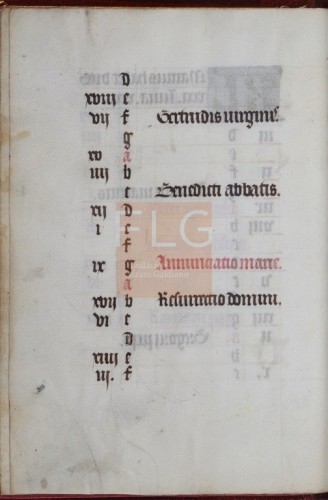 d
xviii e
vij f Gertrudis virginis.
g
xv a
iiij b
c Benedicti abbatis.
xij d
i e
f
ix g Annunciatio marie.
a
xvij b Resurrectio domini.
vi c
d
xiiij e
iij. f
FLG